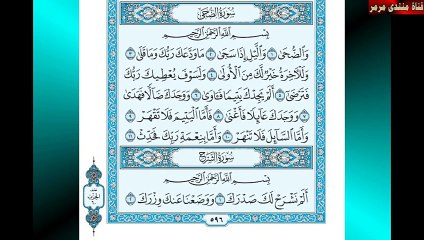 قناة منتدى مرمر
سُورَةُ الضُّحَىٰ
بِسْمِ اللَّهِ الرَّحْمَٰنِ الرَّحِيمِ
وَالضُّحَىٰ ١ وَاللَّيْلِ إِذَا سَجَىٰ ٢ مَا وَدَّعَكَ رَبُّكَ وَمَا قَلَىٰ ٣
وَلَلْآخِرَةُ خَيْرٌ لَّكَ مِنَ الْأُولَىٰ ٤ وَلَسَوْفَ يُعْطِيكَ رَبُّكَ
فَتَرْضَىٰ ٥ أَلَمْ يَجِدْكَ يَتِيمًا فَآوَىٰ ٦ وَوَجَدَكَ ضَالًّا فَهَدَىٰ
٧ وَوَجَدَكَ عَائِلًا فَأَغْنَىٰ ٨ فَأَمَّا الْيَتِيمَ فَلَا تَقْهَرْ ٩
وَأَمَّا السَّائِلَ فَلَا تَنْهَرْ ١٠ وَأَمَّا بِنِعْمَةِ رَبِّكَ فَحَدِّثْ ١١
سُورَةُ الشَّرْحِ
بِسْمِ اللَّهِ الرَّحْمَٰنِ الرَّحِيمِ
أَلَمْ نَشْرَحْ لَكَ صَدْرَكَ ١ وَوَضَعْنَا عَنكَ وِزْرَكَ ٢
٥٩٦